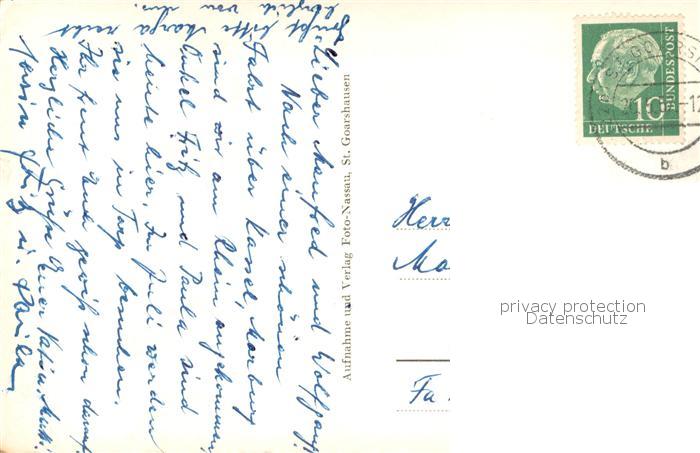 Lieber Manfred und Wolfgang!
Nach einer schönen
Fahrt über Kassel, Marburg
sind wir am Rhein angekommen.
Onkel Fritz und Paula sind
heute hier. Im Juli werden
sie uns in Tarp besuchen.
Ihr freut Euch gewiß schon darauf.
Herzliche Grüße Euer Vati u. Mutti
Fritz u. Paula
Grüßt bitte Marga recht
herzlich von uns.
Aufnahme und Verlag Foto-Nassau, St. Goarshausen
DEUTSCHE
BUNDESPOST
10
b
Herr
Ma
Fa.
privacy protection
Datenschutz